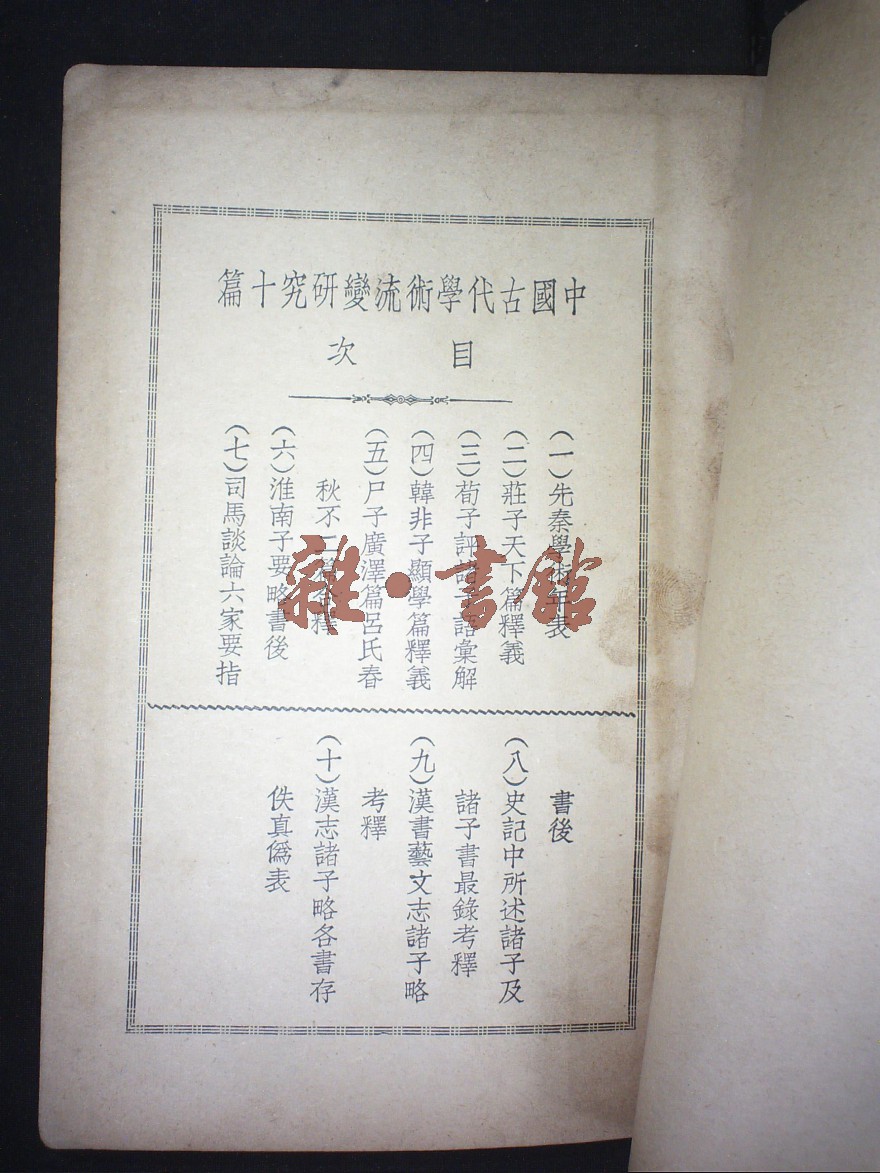 中國古代學術流變研究十篇
目次
(一)先秦學術年表
(二)莊子天下篇釋義
(三)荀子評諸子語彙解
(四)韓非子顯學篇釋義
(五)尸子廣澤篇呂氏春
秋不二篇合釋
(六)淮南子要略書後
(七)司馬談論六家要指
書後
(八)史記中所述諸子及
諸子書最錄考釋
(九)漢書藝文志諸子略
考釋
(十)漢志諸子略各書存
佚真僞表
雜·書館